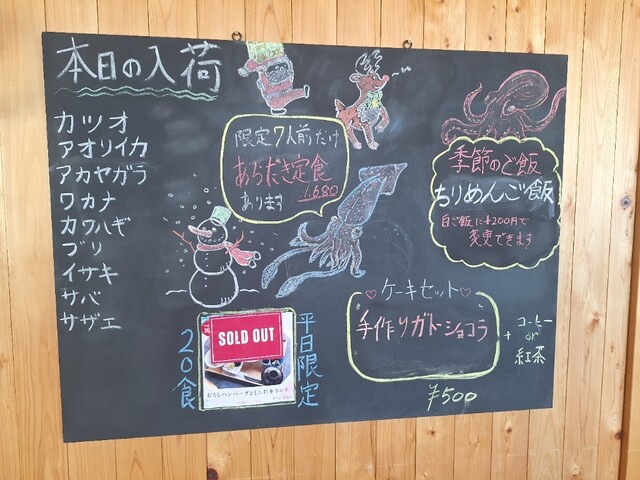 本日の入荷
カツオ
アオリイカ
アカヤガラ
ワカナ
カワハギ
ブリ
イサキ
サバ
サザエ
限定7人前だけ
あらだき定食
1,680
あります
季節のご飯
ちりめんご飯
白ご飯に+200円で
変更できます
平日限定
20食
SOLD OUT
おろしハンバーグとミニ刺身ランチ
ケーキセット
手作りガトーショコラ
+ コーヒー
or
紅茶
¥500